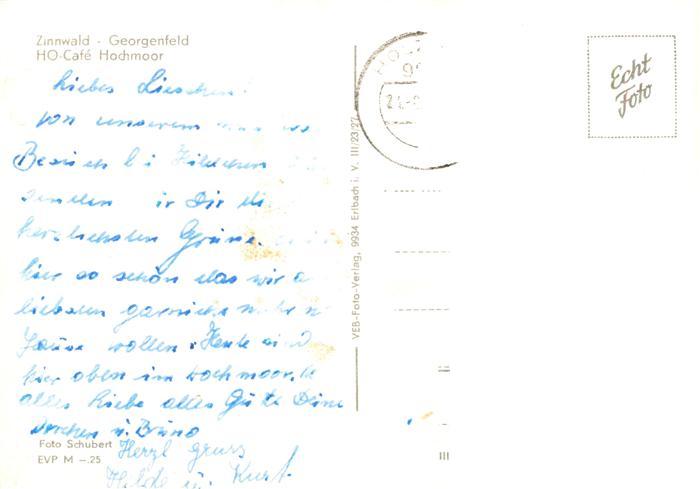 Zinnwald - Georgenfeld
HO-Café Hochmoor
Liebes Lieschen!
Von unserem
Besuch bei Hildchen
senden wir Dir die
herzlichsten Grüße.
hier so schön das wir a
liebsten garnicht mehr n
Hause wollen. Heute sind
hier oben im Hochmoor.
alles Liebe alles Gute Deine
Dorchen u. Bruno
Herzl gruss
Hilde u. Kurt
Foto Schubert
EVP M –.25
VEB-Foto-Verlag, 9934 Erlbach i. V. III/23/27
Echt
Foto